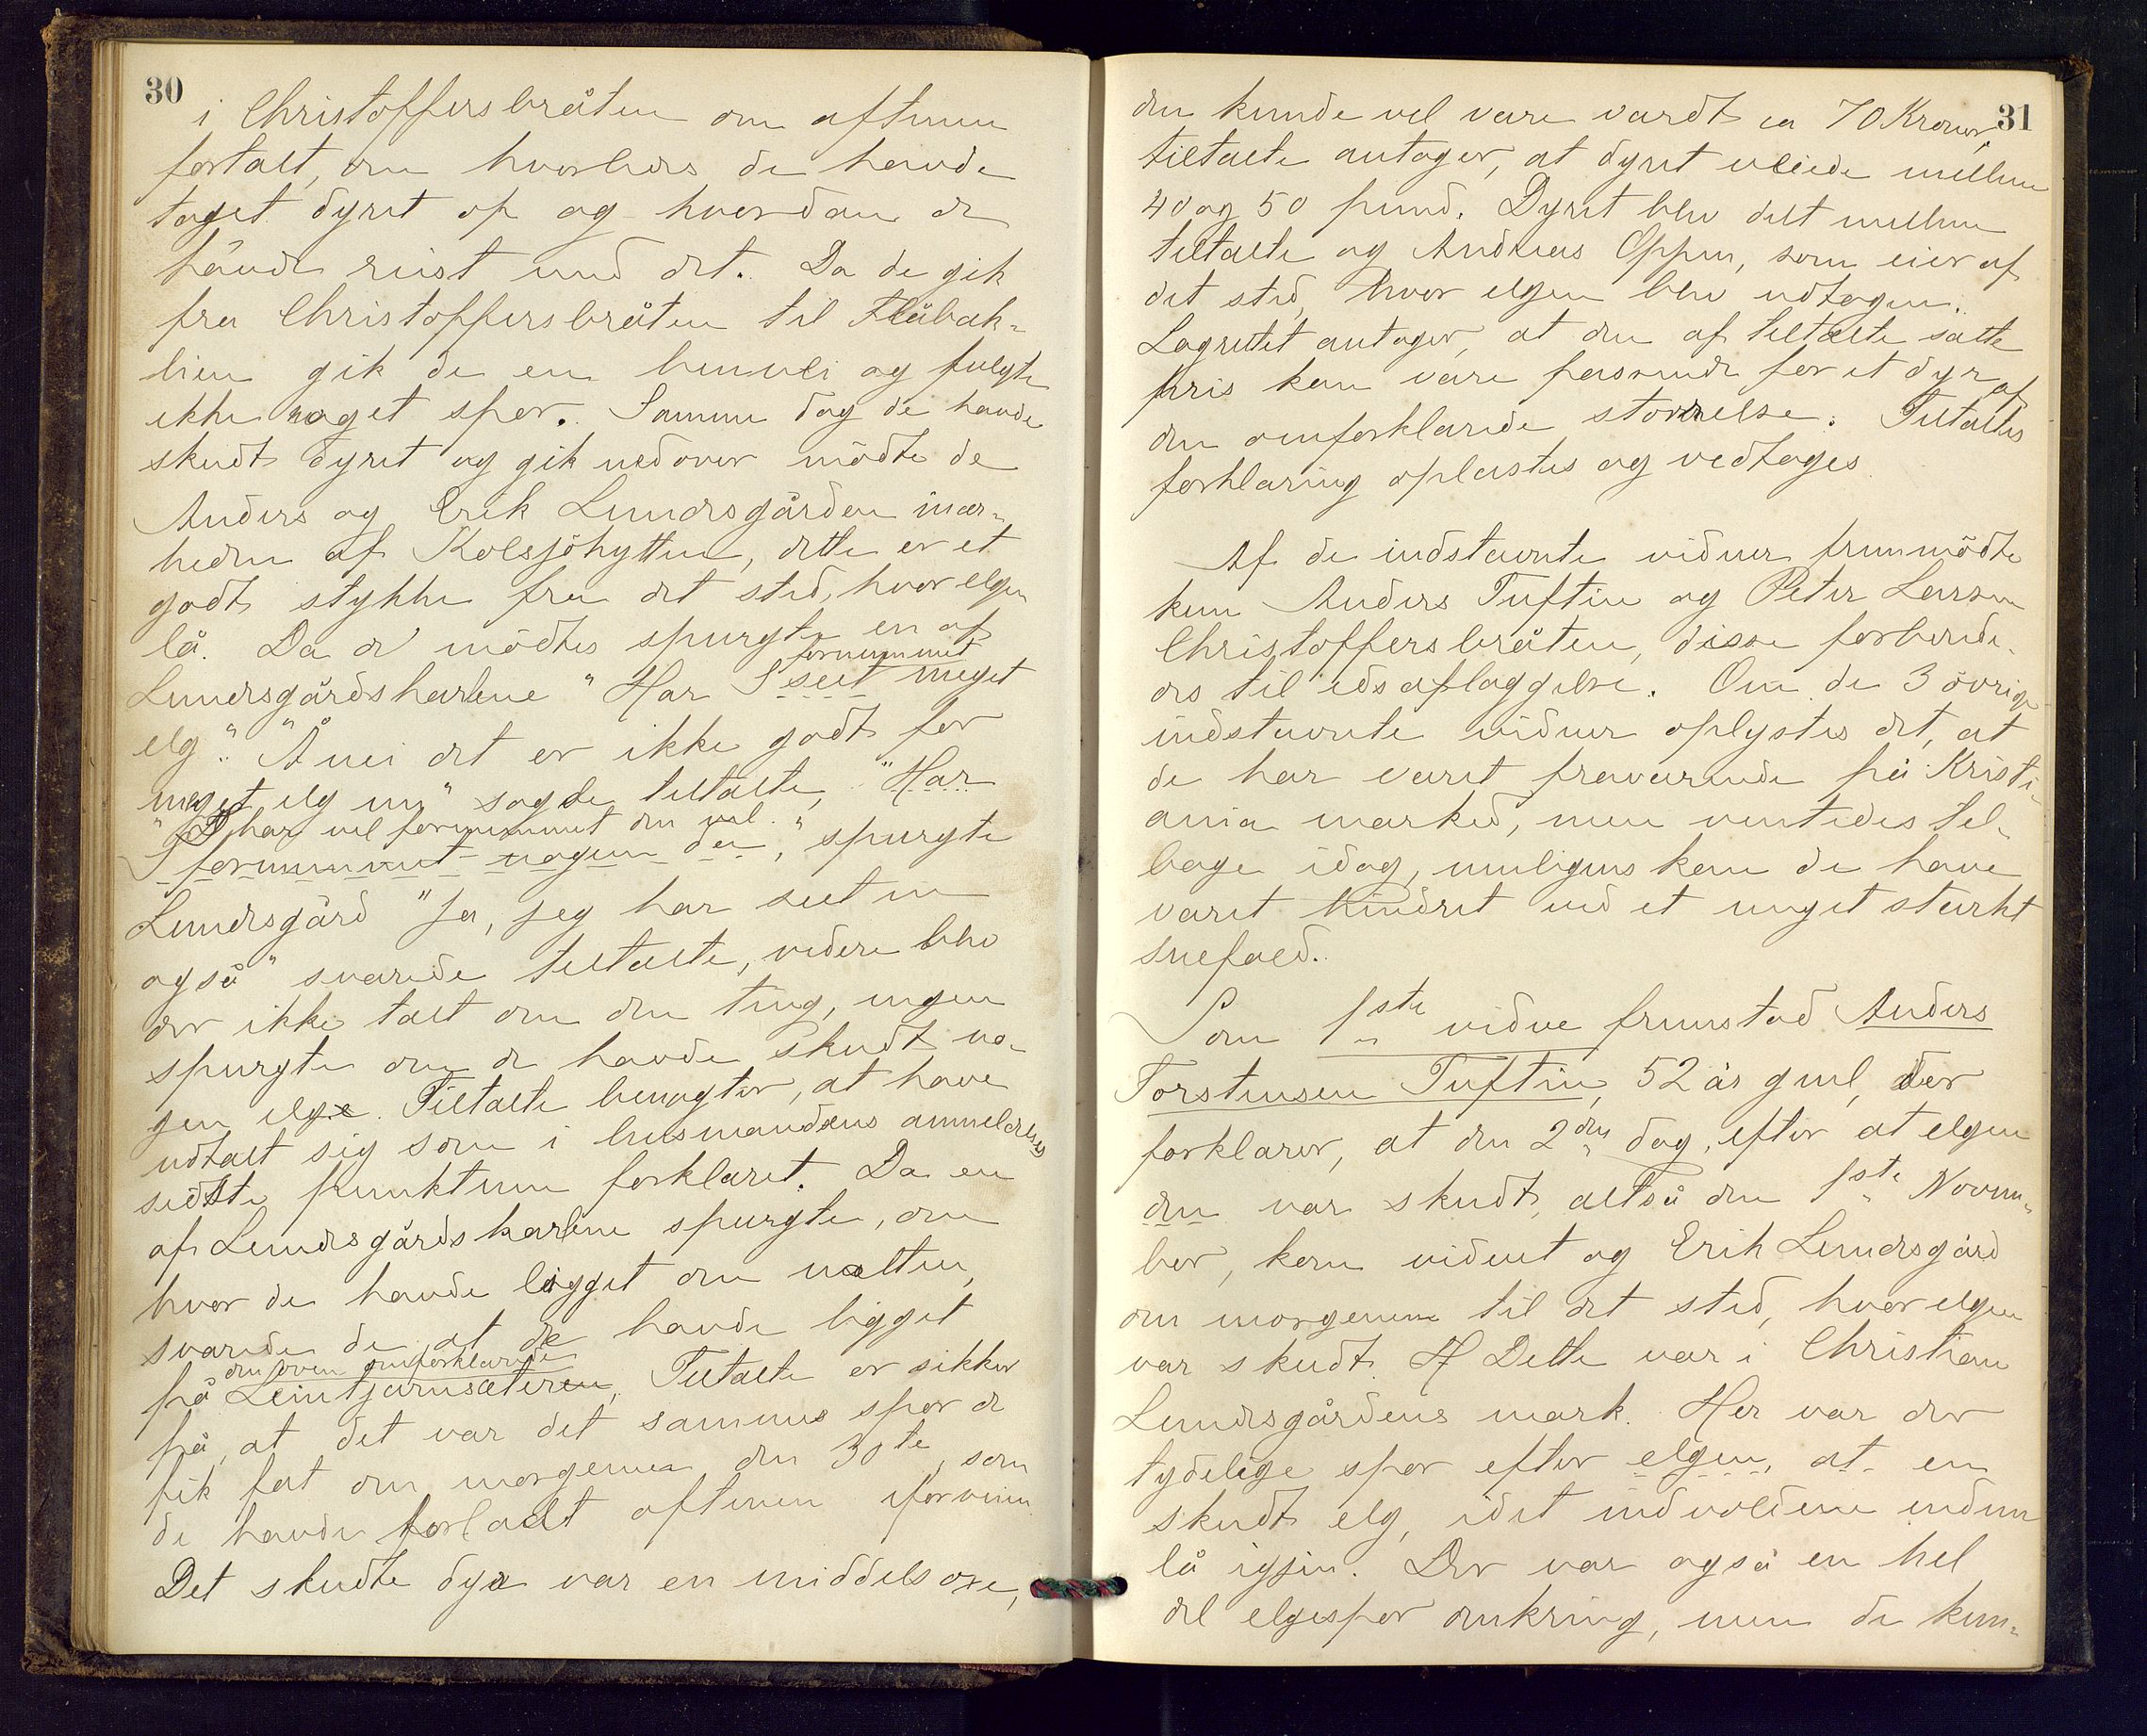 30
i Christoffersbråten om aftenen
fortalt, om hvorledes de havde
taget dyret op og hvordan de
havde reist med det. Da de gik
fra Christoffersbråten til Flåbæk-
lien gik de en benvei og fulgte
ikke noget spor. Samme dag de havde
skudt dyret og gik nedover mödte de
Anders og Erik Lundsgården i nær-
heden af Kolsjöhytten, dette er et
godt stykke fra det sted, hvor elgen
lå. Da de mödtes spurgte en af
fornummet
Lundsgårdskarlene "Har I seet meget
elg". "Å nei det er ikke godt for
meget elg nu" sagde tiltalte, "Har
"I har vel fornummet den vel."
I fornummet nogen da", spurgte
Lundsgård "Ja, jeg har seet en
også" svarede tiltalte, videre blev
der ikke talt om den ting, ingen
spurgte om de havde skudt no-
gen elg. Tiltalte benægter, at have
udtalt sig som i lensmandens anmeldelses
sidste punktum forklaret. Da en
af Lundsgårdskarlene spurgte, om
hvor de havde ligget om natten,
svarede de at de havde ligget
den oven omforklarede
på Leintjernsæteren. Tiltalte er sikker
på, at det var det samme spor de
fik fat om morgenen den 30te, som
de havde forladt aftenen iforveien
Det skudte dyr var en middels oxe,
31
den kunde vel være værdt ca 70 Kroner,
tiltalte antager, at dyret veiede mellem
40 og 50 pund. Dyret blev delt mellem
tiltalte og Andreas Oppen, som eier af
det sted, hvor elgen blev udtagen.
Lagretet antager, at den af tiltalte satte
pris kan være passende for et dyr af
den omforklarede størrelse. Tiltaltes
forklaring oplæstes og vedtages
Af de indstævnte vidner fremmödte
kun Anders Tuftin og Peter Larsen
Christoffersbråten, disse forberede-
des til edsaflæggelse. Om de 3 övrige
indstævnte vidner oplystes det, at
de har været fraværende på Kristi-
ania marked, men ventedes til-
bage idag, muligens kan de have
været hindret ved et meget stærkt
snefald.
Som 1ste vidne fremstod Anders
Torstensen Tuftin, 52 år gml, der
forklarer, at den 2den dag, efter at elgen
den var skudt, altså den 1ste Novem-
ber, kom vidnet og Erik Lundsgård
om morgenen til det sted, hvor elgen
var skudt. Dette var i Christian
Lundsgårdens mark. Her var der
tydelige spor efter elgen, at en
skudt elg, idet indvoldene endnu
lå igjen. Der var også en hel
del elgespor omkring, men de kun-